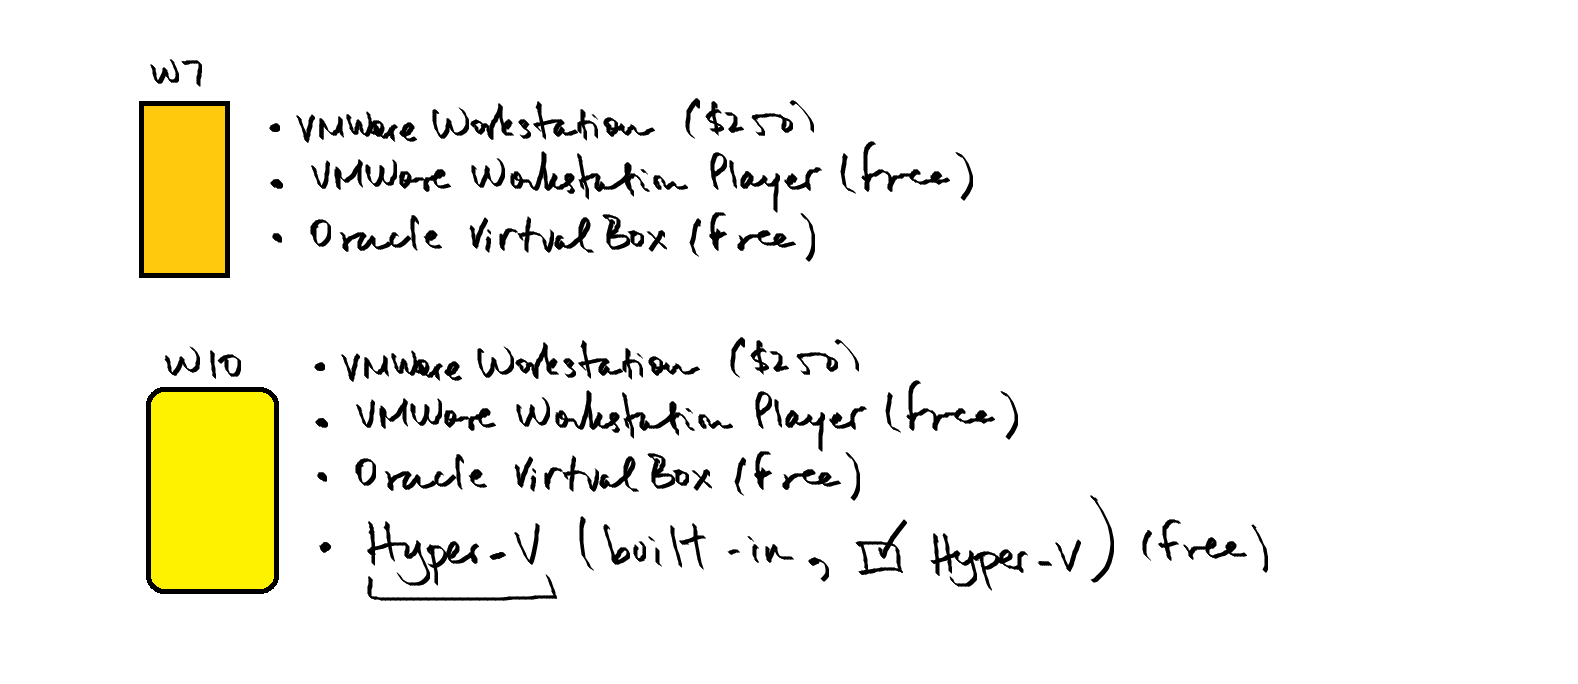 W7
• VMWare Workstation ($250)
• VMWare Workstation Player (free)
• Oracle Virtual Box (free)
W10
• VMWare Workstation ($250)
• VMWare Workstation Player (free)
• Oracle Virtual Box (free)
• Hyper-V (built-in, ☑ Hyper-V) (free)